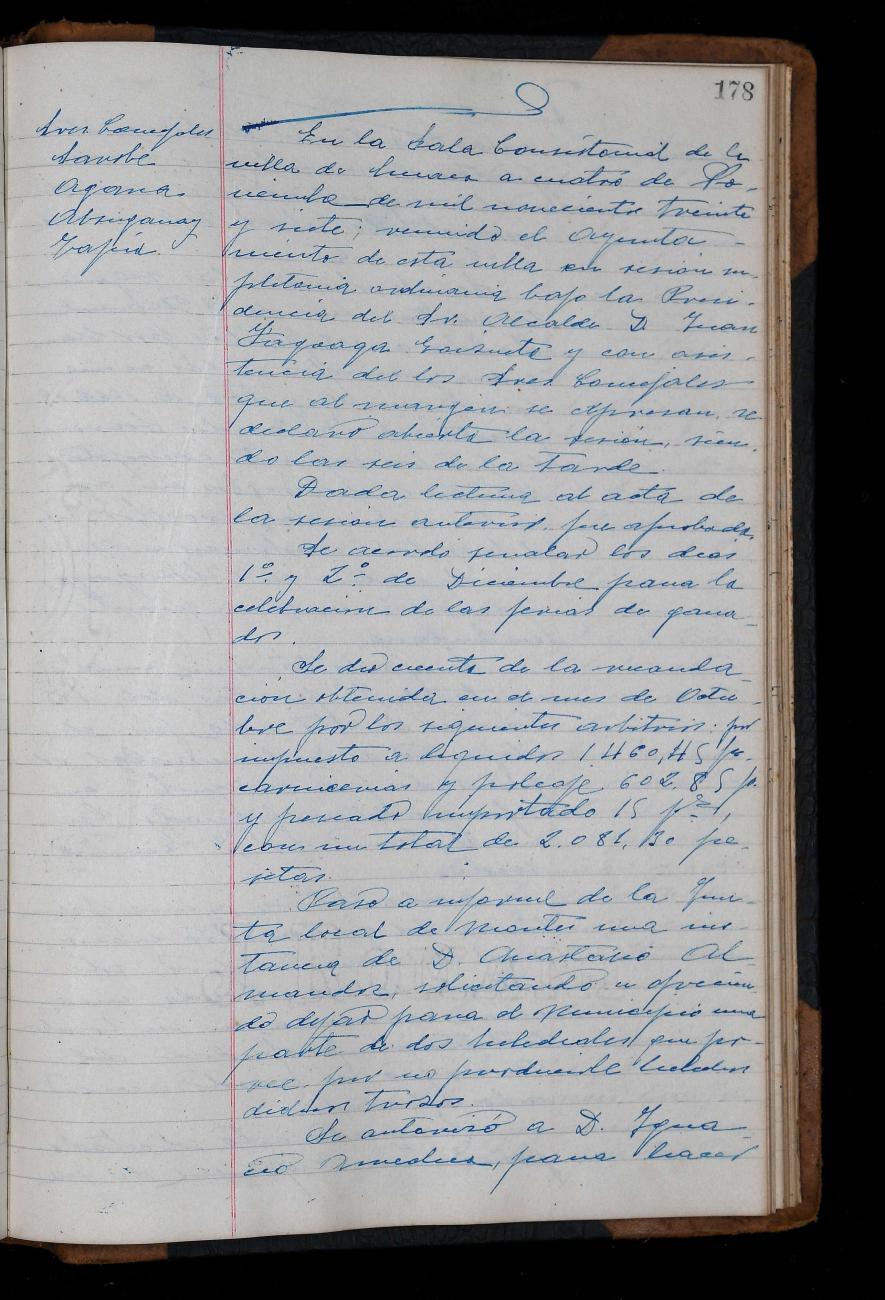 178
Sres Concejales
Sarobe
Agara
En la Sala Consistorial de la
villa de a cuatro de No-
viembre de mil novecientos treinta
y siete; reunido el Ayunta-
miento de esta villa en sesion su-
pletoria ordinaria bajo la Presi-
dencia del Sr. Alcalde D. Juan
y con asis-
tencia del los Sres Concejales
que al margen se expresan, se
declaró abierta la sesión, sien-
do las seis de la tarde.
Dada lectura al acta de
la sesion anterior, fue aprobada.
Se acordo señalar los dias
1º y 2º de Diciembre para la
celebracion de las ferias de gana-
dos.
Se dió cuenta de la recauda-
ción obtenida en el mes de Octu-
bre por los siguientes arbitrios: por
impuesto a liquidos 1.460,45 pts.
carnicerias y 602,85 pts
y pescado importado 15 ptas,
con un total de 2.081,30 pe-
setas.
Pasó a informe de la Jun-
ta local de Montes una ins-
tancia de D. Anastasio Al-
mandoz, solicitando u ofrecien-
do dejar para el Municipio una
parte de dos helechales que po-
see por no producirle helechos
dichos trozos.
Se autorizó a D. Igna-
cio para hacer